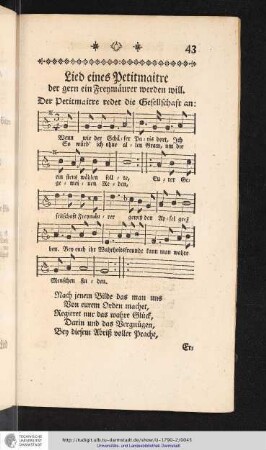 43
Lied eines Petitmaitre
der gern ein Freymäurer werden will.
Der Petitmaitre redet die Gesellschaft an:
Wenn wie der Schä-fer Pa-ris dort. Ich
So würd' ich ohne al-len Gram, um die
ein stens wählen soll-te,
Eu-rer Ge-
ge-wei-nen Re-den,
sellschaft Freymäu-rer gewis den Ap-fel geg
ben. Bey euch ihr Wahrheitsfreunde kann man wahre
Menschen fin-den.
Nach jenem Bilde das man uns
Von eurem Orden machet,
Regieret nur das wahre Glück,
Darin und das Vergnügen,
Bey diesem Abriß voller Pracht,
Er:
TECHNISCHE
UNIVERSITÄT
DARMSTADT
http://tudigit.ulb.tu-darmstadt.de/show/iJ-1790-2/0043
Universitäts- und Landesbibliothek Darmstadt